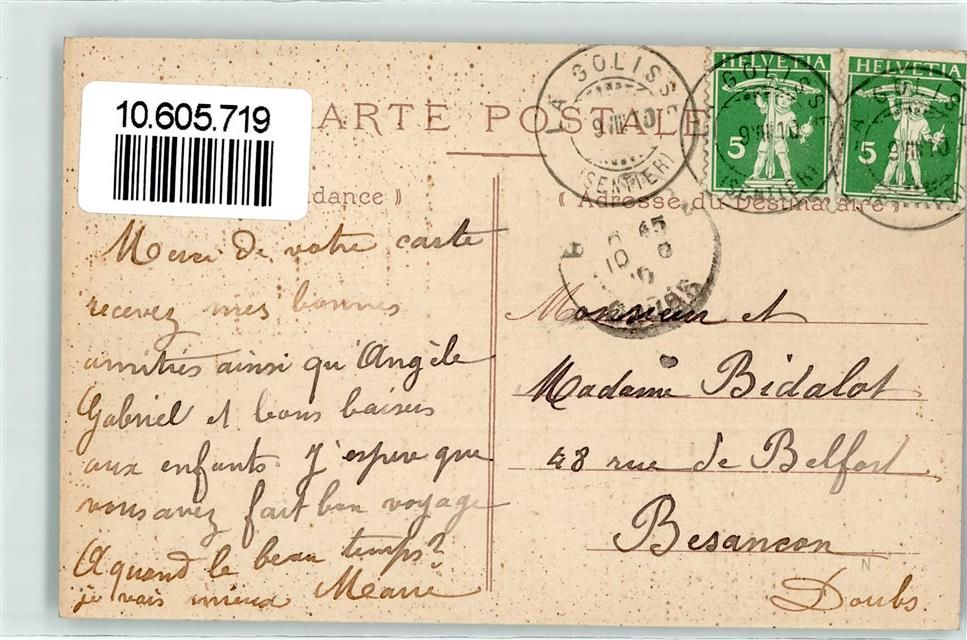 10.605.719
CARTE POSTALE
LA GOLISSE
9 VIII 10
(SENTIER)
LA GOLISSE
9 VIII 10
(SENTIER)
LA GOLISSE
9 VIII 10
HELVETIA
5
HELVETIA
5
dance )
( Adresse du Destinataire )
Merci de votre carte
recevez mes bonnes
amitiés ainsi qu'Angèle
Gabriel et bons baisers
aux enfants. J'espère que
vous avez fait bon voyage
A quand le beau temps?
je vais mieux Marie
Monsieur et
Madame Bidalot
48 rue de Belfort
Besancon
Doubs
N